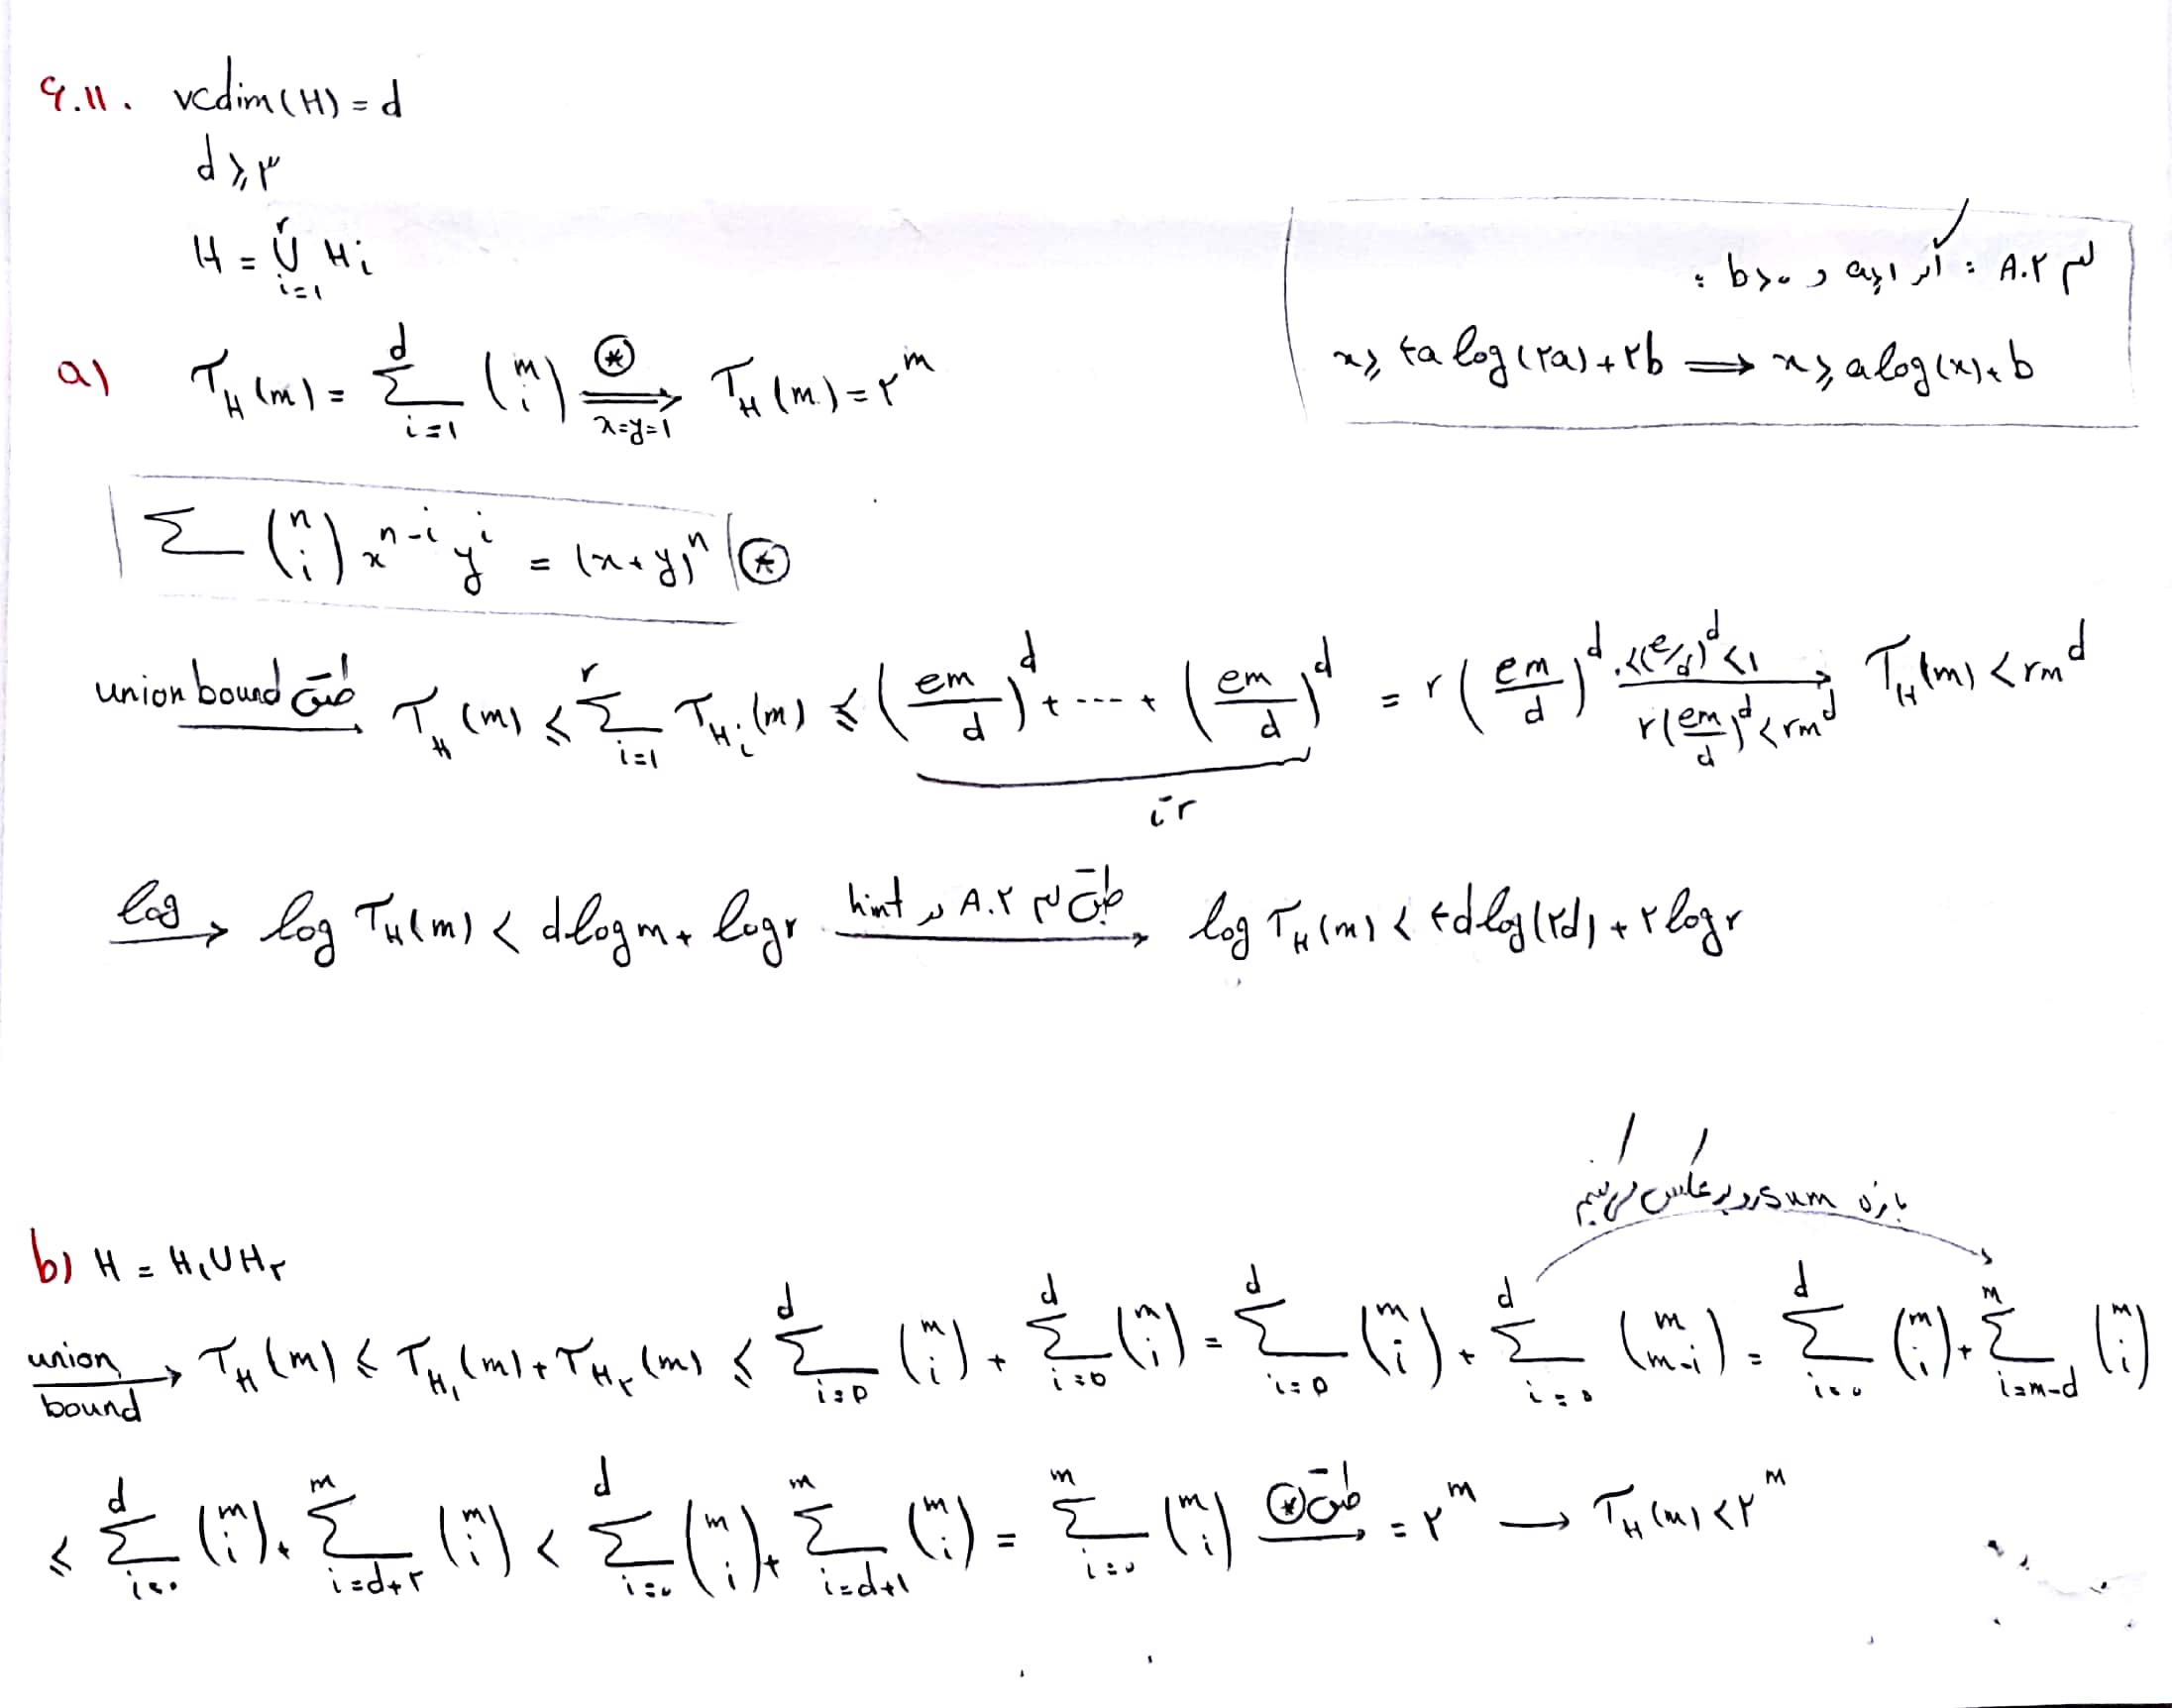 ۶.۱۱. vcdim(H) = d
d ⩾ ۳
H = ⋃_{i=1}^{r} H_i
لم A.۲ : اگر a⩾۱ و b>۰ :
x ⩾ ۴a log(۲a) + ۲b ⟹ x ⩾ a log(x) + b
a) τ_H(m) = Σ_{i=1}^{d} (m i) ⟹^{⊛}_{x=y=1} τ_H(m) = ۲^m
Σ (n i) x^{n-i} y^i = (x+y)^n ⊛
طبق union bound → τ_H(m) ⩽ Σ_{i=1}^{r} τ_{H_i}(m) ⩽ (em/d)^d + ---- + (em/d)^d = r(em/d)^d →^{۰<(e/d)^d<1}_{r(em/d)^d < rm^d} τ_H(m) < rm^d
r تا
log → log τ_H(m) < d log m + log r → طبق لم A.۲ در hint log τ_H(m) < ۴d log(۲d) + ۲ log r
بازه sum رو برعکس می‌کنیم
b) H = H_۱ ∪ H_۲
union bound → τ_H(m) ⩽ τ_{H_۱}(m) + τ_{H_۲}(m) ⩽ Σ_{i=0}^{d} (m i) + Σ_{i=0}^{d} (m i) = Σ_{i=0}^{d} (m i) + Σ_{i=۰}^{d} (m m-i) = Σ_{i=۰}^{d} (m i) + Σ_{i=m-d}^{m} (m i)
⩽ Σ_{i=۰}^{d} (m i) + Σ_{i=d+۲}^{m} (m i) < Σ_{i=۰}^{d} (m i) + Σ_{i=d+1}^{m} (m i) = Σ_{i=۰}^{m} (m i) طبق ⊛ → = ۲^m → τ_H(m) < ۲^m